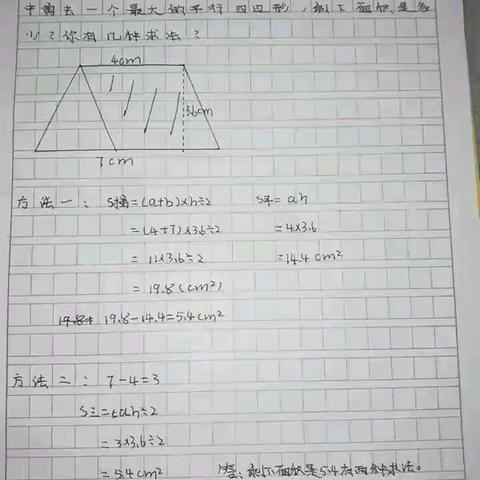 中剪去一个最大的平行四边形，剩下面积是多
少？你有几种求法？
4cm
3.6cm
7cm
方法一： S梯=(a+b)×h÷2 S平=ah
=(4+7)×3.6÷2 =4×3.6
=11×3.6÷2 =14.4cm²
=19.8(cm²)
19.8-14.4=5.4cm²
方法二： 7-4=3
S三=ah÷2
=3×3.6÷2
=5.4cm²
答：剩下面积是5.4有两种求法。